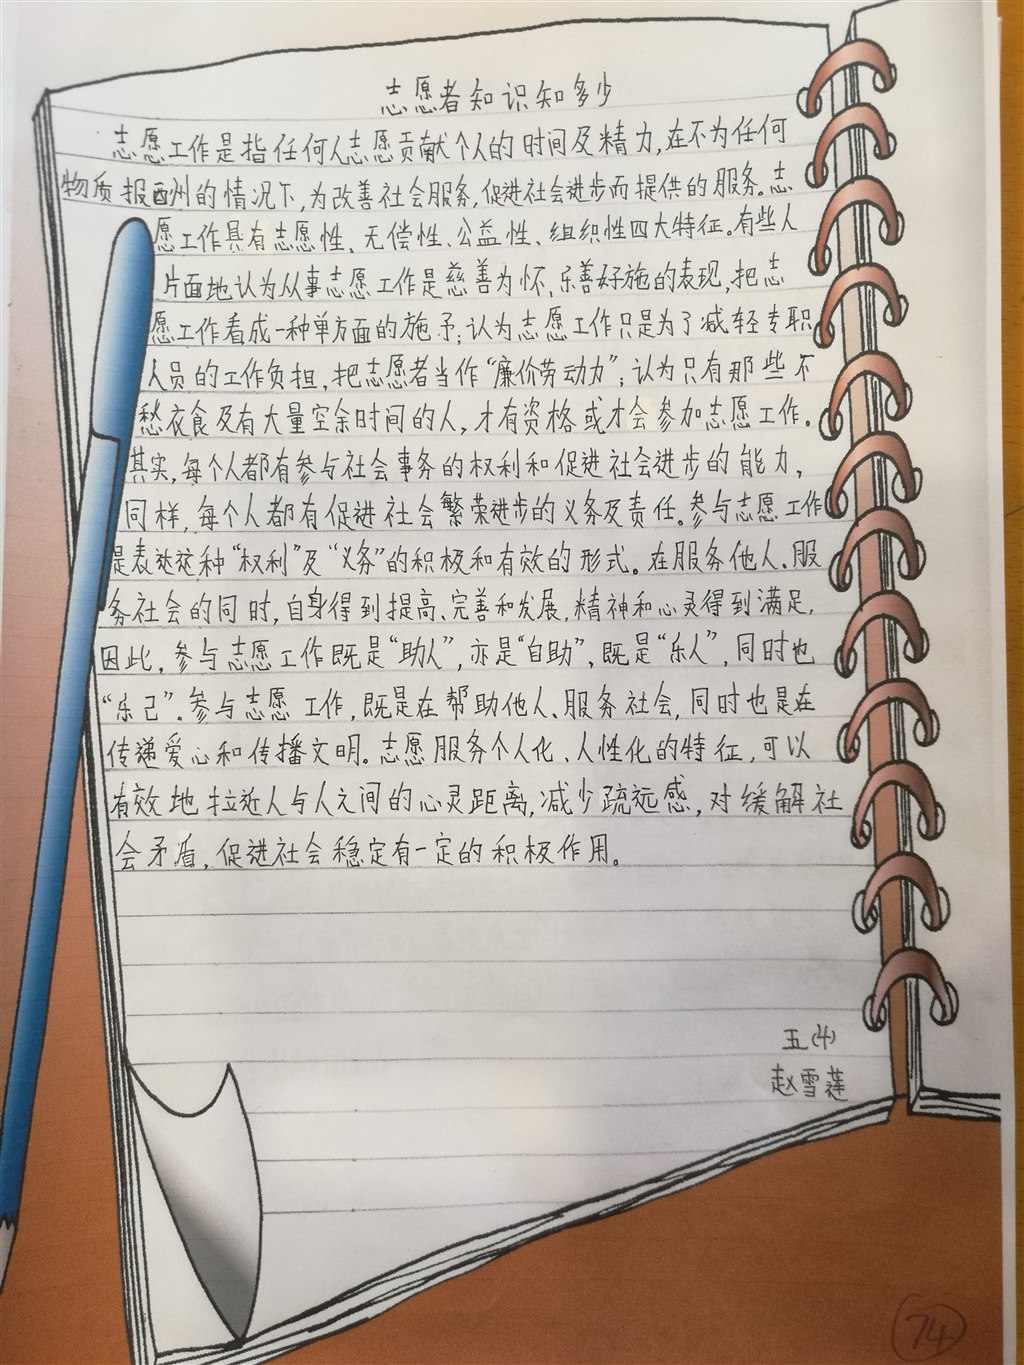 志愿者知识知多少
志愿工作是指任何人志愿贡献个人的时间及精力,在不为任何
物质报酬的情况下,为改善社会服务,促进社会进步而提供的服务。志
愿工作具有志愿性、无偿性、公益性、组织性四大特征。有些人
片面地认为从事志愿工作是慈善为怀、乐善好施的表现,把志
愿工作看成一种单方面的施予;认为志愿工作只是为了减轻专职
人员的工作负担,把志愿者当作“廉价劳动力”;认为只有那些不
愁衣食及有大量空余时间的人,才有资格或才会参加志愿工作。
其实,每个人都有参与社会事务的权利和促进社会进步的能力,
同样,每个人都有促进社会繁荣进步的义务及责任。参与志愿工作
是表达这种“权利”及“义务”的积极和有效的形式。在服务他人、服
务社会的同时,自身得到提高、完善和发展,精神和心灵得到满足,
因此,参与志愿工作既是“助人”,亦是“自助”,既是“乐人”,同时也
“乐己”。参与志愿工作,既是在帮助他人、服务社会,同时也是在
传递爱心和传播文明。志愿服务个人化、人性化的特征,可以
有效地拉近人与人之间的心灵距离,减少疏远感,对缓解社
会矛盾,促进社会稳定有一定的积极作用。
五(4)
赵雪莲
74